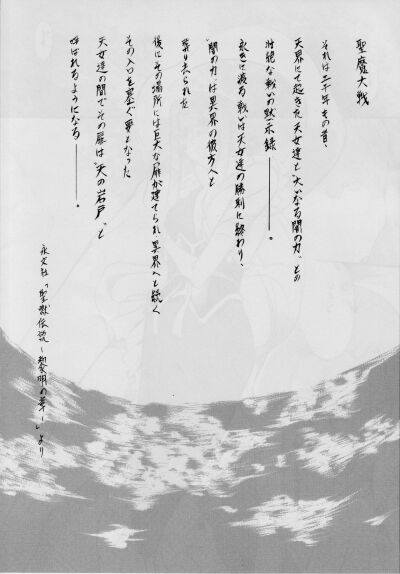 聖魔大戦
それは二千年もの昔、
天界にて起きた天女達と"大いなる闇の力"との
壮絶な戦いの黙示録――。
永きに渡る戦いは天女達の勝利に終わり、
"闇の力"は異界の彼方へと
葬り去られた
後にその場所には巨大な扉が建てられ、異界へと続く
その入口を塞ぐ事となった
天女達の間でその扉は"天の岩戸"と
呼ばれるようになる――。
永文社「聖獣伝説～黎明の章～」より